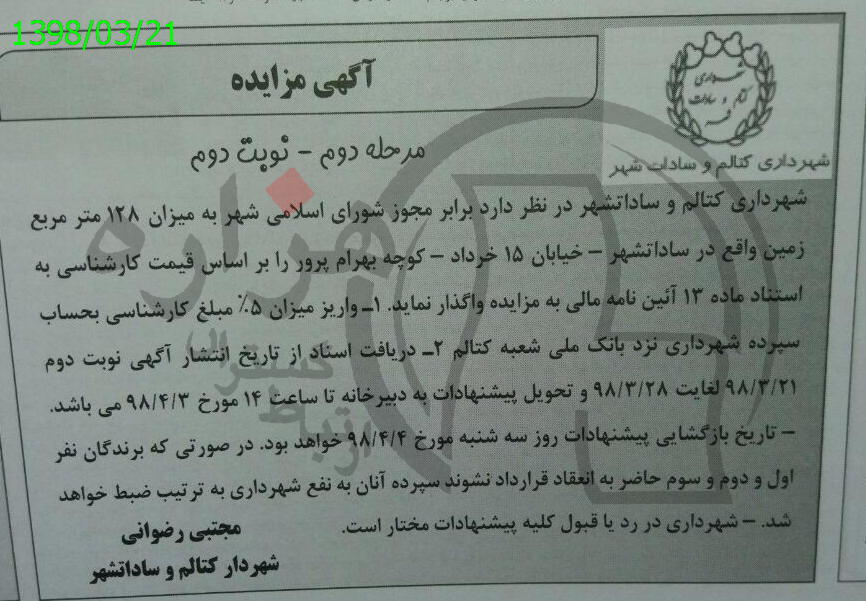 1398/03/21
آگهی مزایده
شهرداری
کتالم و سادات
شهرداری کتالم و سادات شهر
مرحله دوم - نوبت دوم
شهرداری کتالم و ساداتشهر در نظر دارد برابر مجوز شورای اسلامی شهر به میزان ۱۲۸ متر مربع
زمین واقع در ساداتشهر – خیابان ۱۵ خرداد – کوچه بهرام پرور را بر اساس قیمت کارشناسی به
استناد ماده ۱۳ آئین نامه مالی به مزایده واگذار نماید. ۱ـ واریز میزان ۵٪ مبلغ کارشناسی بحساب
سپرده شهرداری نزد بانک ملی شعبه کتالم ۲ـ دریافت اسناد از تاریخ انتشار آگهی نوبت دوم
۹۸/۳/۲۱ لغایت ۹۸/۳/۲۸ و تحویل پیشنهادات به دبیرخانه تا ساعت ۱۴ مورخ ۹۸/۴/۳ می باشد.
– تاریخ بازگشایی پیشنهادات روز سه شنبه مورخ ۹۸/۴/۴ خواهد بود. در صورتی که برندگان نفر
اول و دوم و سوم حاضر به انعقاد قرارداد نشوند سپرده آنان به نفع شهرداری به ترتیب ضبط خواهد
شد. – شهرداری در رد یا قبول کلیه پیشنهادات مختار است.
مجتبی رضوانی
شهردار کتالم و ساداتشهر
هزاره
گسترش
ارتباط